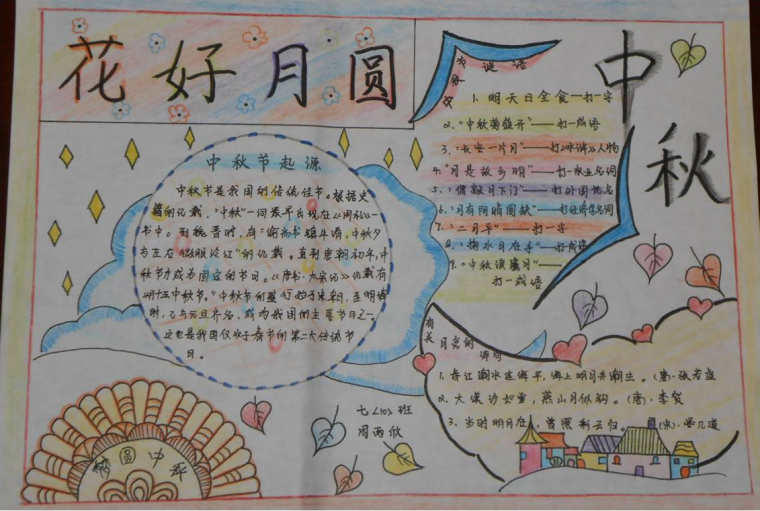 花好月圆
中秋
中秋节起源
中秋节是我国的传统佳节。根据史
籍的记载，“中秋”一词最早出现在《周礼》一
书中。到魏晋时，有“谕尚书镇牛渚，中秋夕
与左右微服泛江”的记载。直到唐朝初年，中
秋节才成为固定的节日。《唐书·太宗记》记载有
“八月十五中秋节”。中秋节的盛行始于宋朝，至明清
时，已与元旦齐名，成为我国的主要节日之一。
这也是我国仅次于春节的第二大传统节
日。
谜语
1、明天日全食——打一字
2、“中秋菊盛开”——打一成语
3、“长安一片月”——打人物
4、“月是故乡明”——打一名词
5、“僧敲月下门”——打外国地名
6、“月有阴晴圆缺”——打经济学名词
7、“二月平”——打一字
8、“掬水月在手”——打成语
9、“中秋
打一成语
有关月亮的诗句
1、春江潮水连海平，海上明月共潮生。（唐）张若虚
2、大漠沙如雪，燕山月似钩。（唐）李贺
3、当时明月在，曾照彩云归。（宋）晏几道
七（10）班
周雨欣
团圆中秋